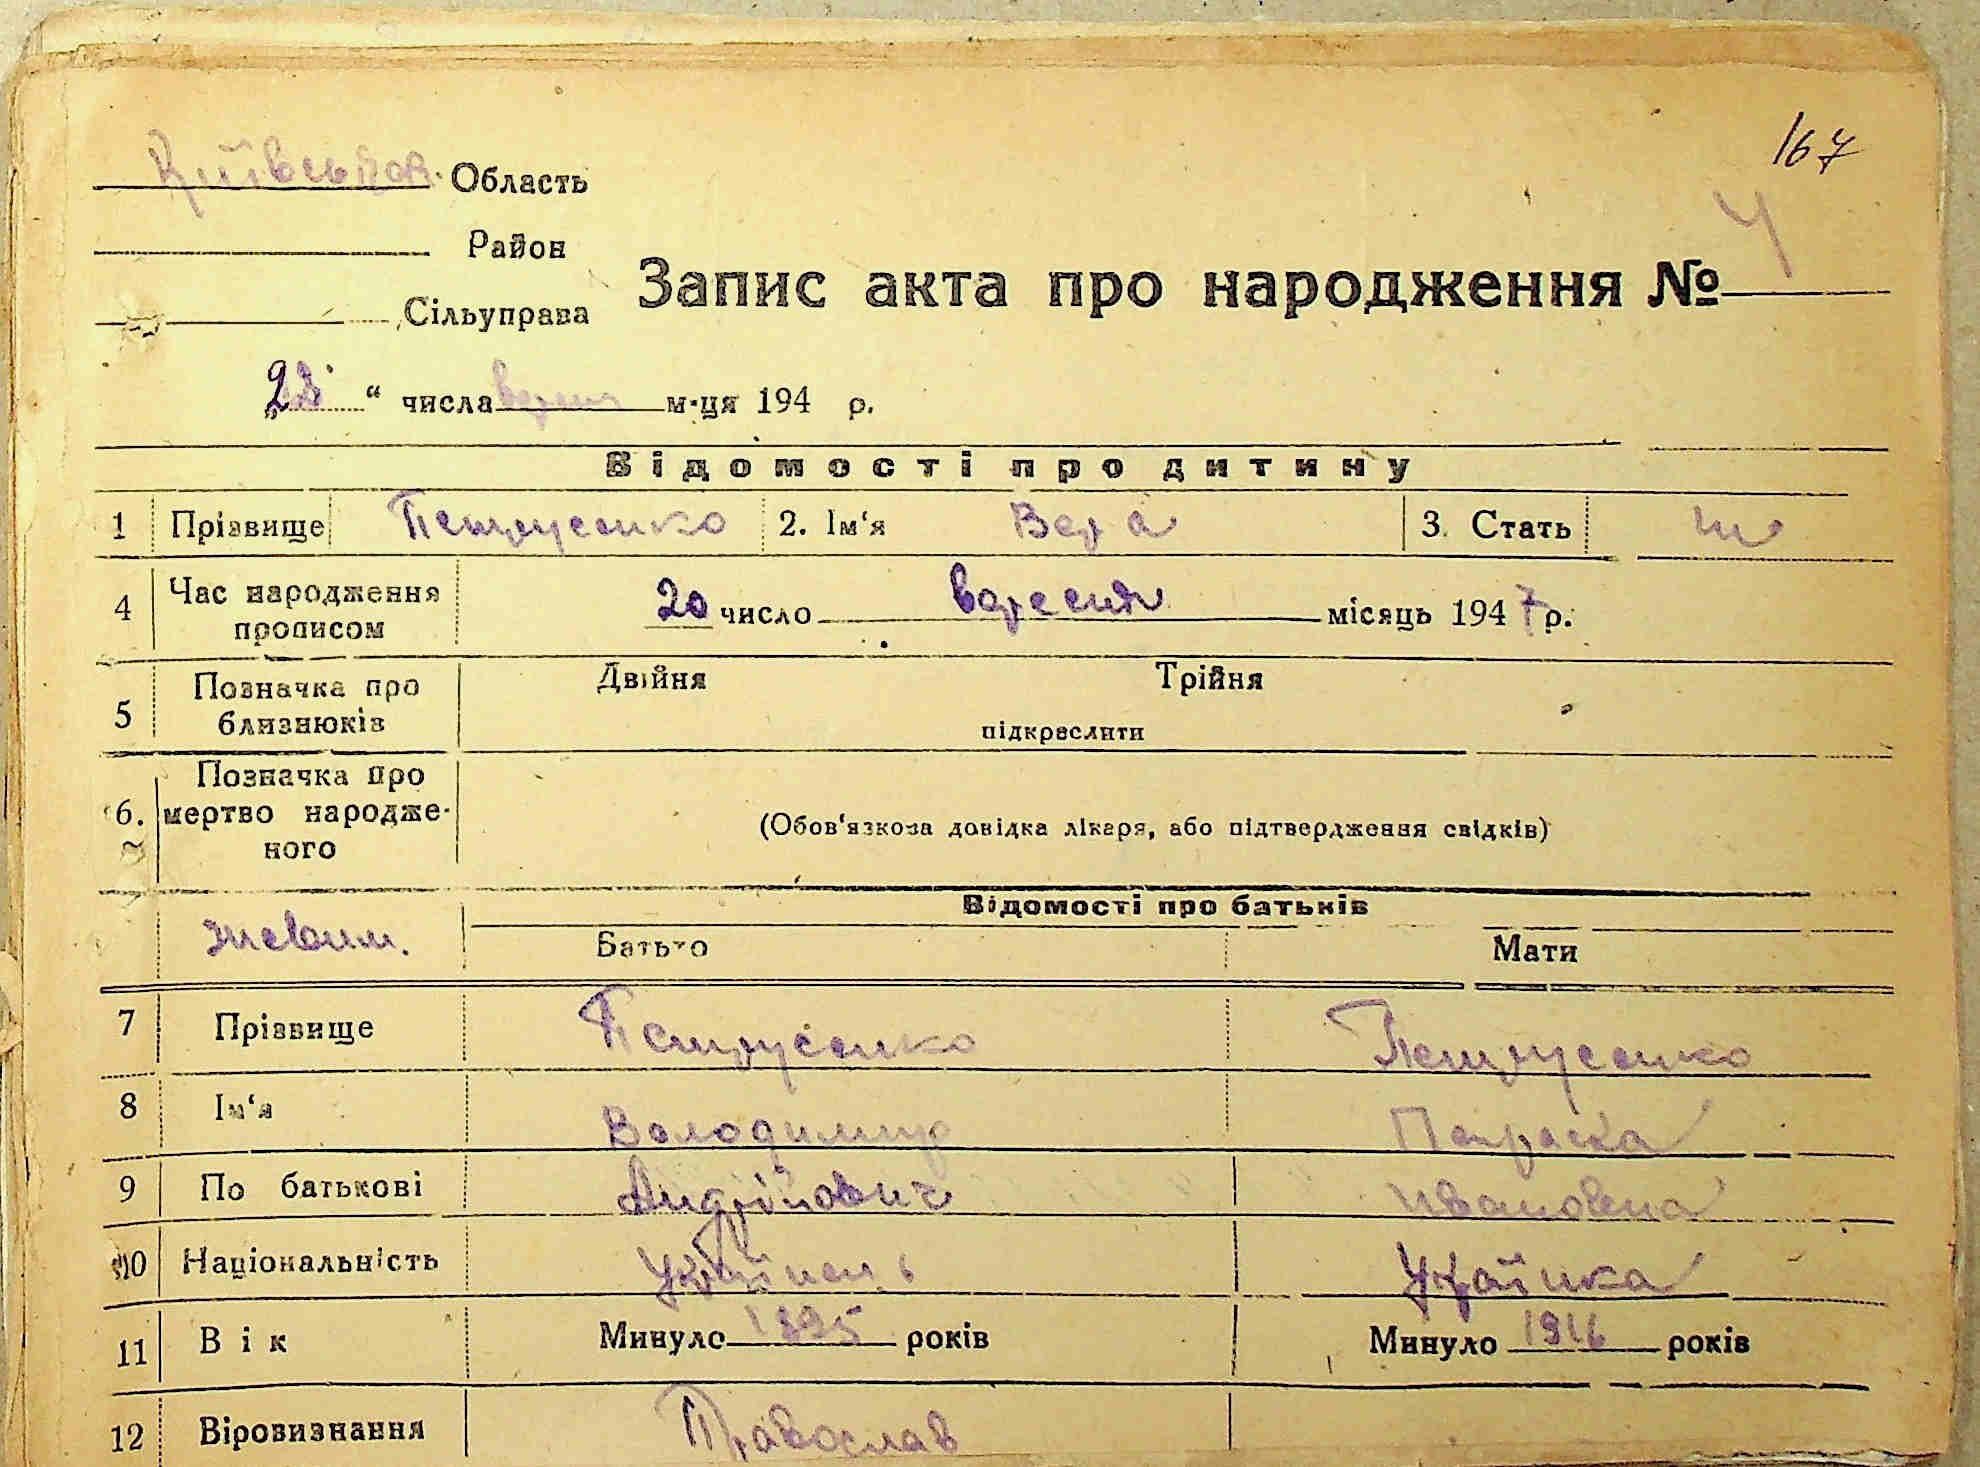 167
Київськая Область
Район
Сільуправа
Запис акта про народження № 4
„28“ числа верес м-ця 194 р.
Відомості про дитину
1 Прізвище Петрусенко 2. Ім‘я Вера 3. Стать ж
4 Час народження прописом 20 число вересня місяць 1947 р.
5 Позначка про близнюків Двійня Трійня
підкреслити
6. Позначка про мертво народже-
ного (Обов‘язкова довідка лікаря, або підтвердження свідків)
Відомості про батьків
Батько Мати
7 Прізвище Петрусенко Петрусенко
8 Ім‘я Володимир Параска
9 По батькові Андрійович Ивановна
10 Національність Українець Українка
11 Вік Минуло 1895 років Минуло 1916 років
12 Віровизнання Православ